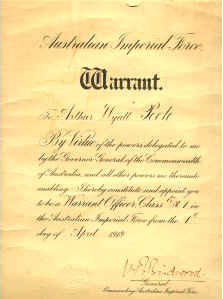 Australian Imperial Force.
Warrant.
To Arthur Wyatt Poole
By Virtue of the powers delegated to me
by the Governor General of the Commonwealth
of Australia, and all other powers me thereunto
enabling I hereby constitute and appoint you
to be a Warrant Officer, Class
the Australian Imperial Force from the 1st
day of April 1919
General,
Commanding Australian Imperial Force.